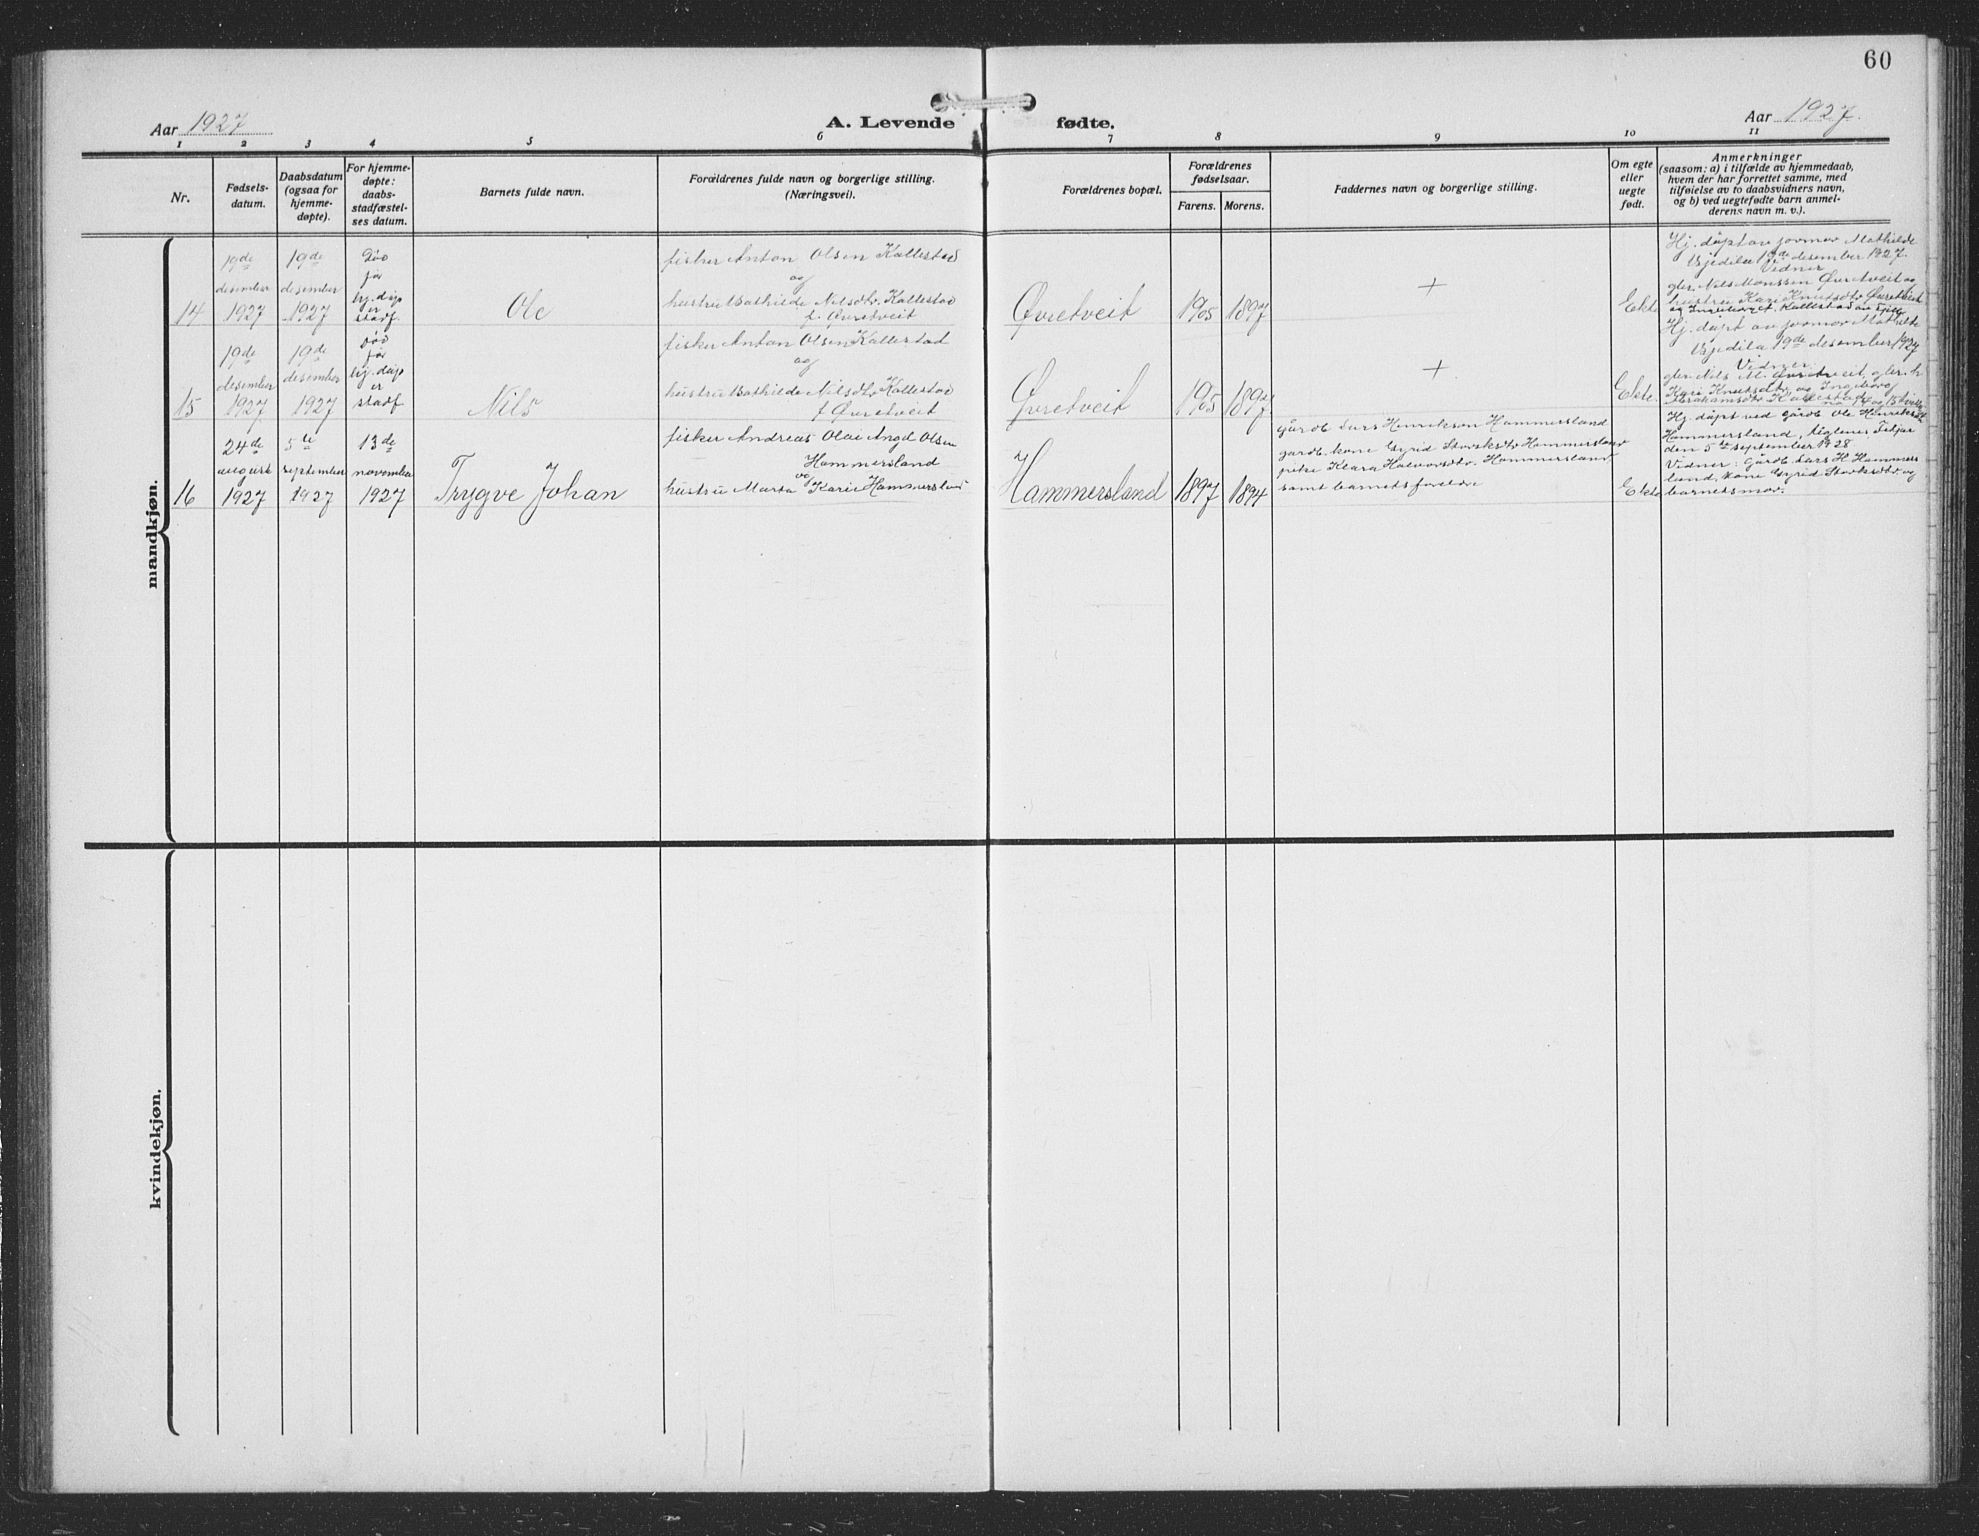 60
Aar 1927
A. Levende fødte.
Aar 1927.
1 2 3 4 5 6 7 8 9 10 11
Nr.
Fødsels-
datum.
Daabsdatum
(ogsaa for
hjemme-
døpte).
For hjemme-
døpte:
daabs-
stadfæstel-
ses datum.
Barnets fulde navn.
Forældrenes fulde navn og borgerlige stilling.
(Næringsvei).
Forældrenes bopæl.
Forældrenes
fødselsaar.
Farens. Morens.
Faddernes navn og borgerlige stilling.
Om egte
eller
uegte
født.
Anmerkninger
(saasom: a) i tilfælde av hjemmedaab,
hvem der har forrettet samme, med
tilføielse av to daabsvidners navn,
og b) ved uegtefødte barn anmel-
derens navn m. v.).
mandkjøn.
14
19de
desember
1927
19de
desember
1927
Død
før
hj.dåp
er
stadf.
Ole
fisker Anton Olsen Kallestad
og
hustru Bathilde Nilsdtr. Kallestad
f. Øvretveit
Øvretveit
1905
1897
+
Ekte
Hj. døpt av jormor Mathilde
19de desember 1927.
Vidner
gbr. Nils Monssen Øvretveit og
hustru Kari Knutsdtr Øvretveit
15
19de
desember
1927
19de
desember
1927
død
før
hj.dåp
er
stadf
Nils
fisker Anton Olsen Kallestad
og
hustru Bathilde Nilsdtr. Kallestad
f Øvretveit
Øvretveit
1905
1897
+
Ekte.
Hj. døpt av jormor Mathilde
19de desember 1927
Vidner
gbr. Nils M. Øvretveit, gbr. h
Kari Knutsdtr og Ingeborg
Abrahamsdtr Kallestad
16
24de
august
1927
5te
september
1927
13de
november
1927
Trygve Johan
fisker Andreas Olai Angd Olsen
Hammersland
og
hustru Marta Karie Hammersland
Hammersland
1897
1894
gårdb Lars Henrikson Hammersland
gårdb. kone Gyrid Hammersland
pike Klara Halvorsdtr. Hammersland
samt barnets foreldre
Ekte
Hj. døpt ved gårdb Ole Henrikson
Hammersland,
den 5te september 1928
Vidner: Gårdb Lars H Hammers
land, kone Gyrid og
barnets mor.
kvindekjøn.